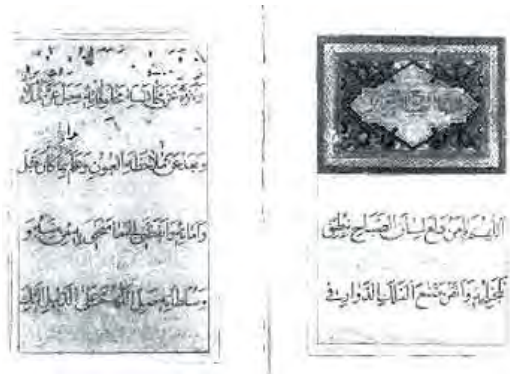 اللهم يا من دلع لسان الصباح بنطق
تبلجه واتقن صنع الفلك الدوار في
وتنزه عن مجانسة مخلوقاته وجل عن
وبعد عن ملاحظة العيون وعلم بما كان قبل
وامانه وايقظني الى ما منحني به من مننه و
وسلطانه صل اللهم على الدليل اليك